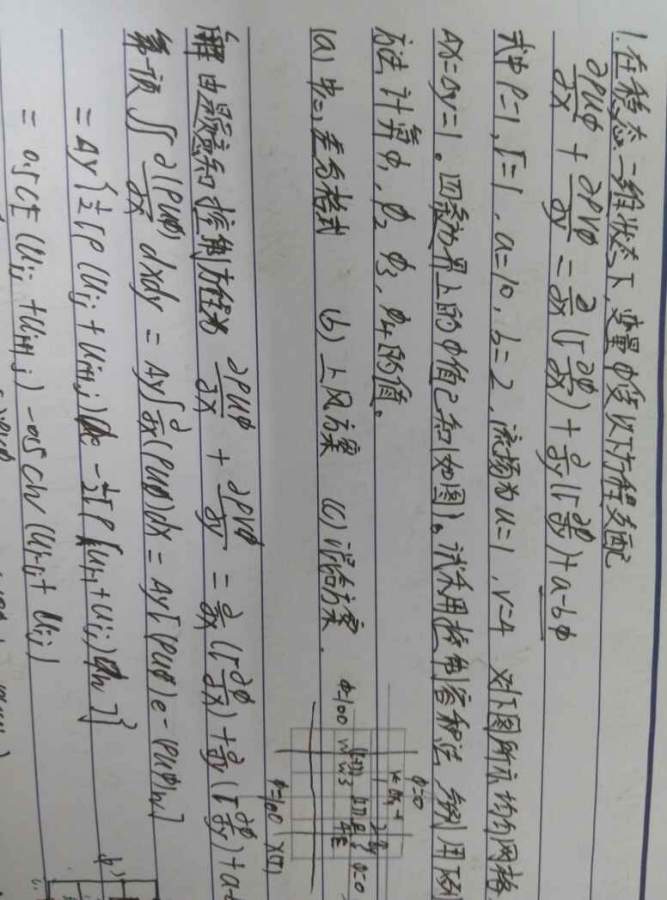 1. 在稳态二维状态下,变量φ受以下方程支配
∂ρuφ/∂x + ∂ρvφ/∂y = ∂/∂x(Γ∂φ/∂x) + ∂/∂y(Γ∂φ/∂y) + a-bφ
式中 ρ=1, Γ=1, a=10, b=2, 流场为 u=1, v=4 对下图所示均匀网格
Δx=Δy=1。四条边界上的φ值已知(如图)。试利用控制容积法 分别用
方法计算 φ1, φ2, φ3, φ4 的值。
(a) 中心差分格式 (b) 上风方案 (c) 混合方案.
φ=0
φ=100
φ=0
φ=100
解 由题意知控制方程为 ∂ρuφ/∂x + ∂ρvφ/∂y = ∂/∂x(Γ∂φ/∂x) + ∂/∂y(Γ∂φ/∂y) + a-
第一项 ∬ ∂(ρuφ)/∂x dxdy = Δy∫∂/∂x(ρuφ)dx = Δy[(ρuφ)e - (ρuφ)w]
= Δy{½[ρ(ui,j + ui+1,j)φe - ½[ρ(ui-1 + ui,j)φw]}
= 0.5CE(ui,j + ui+1,j) - 0.5CW(ui-1,j + ui,j)